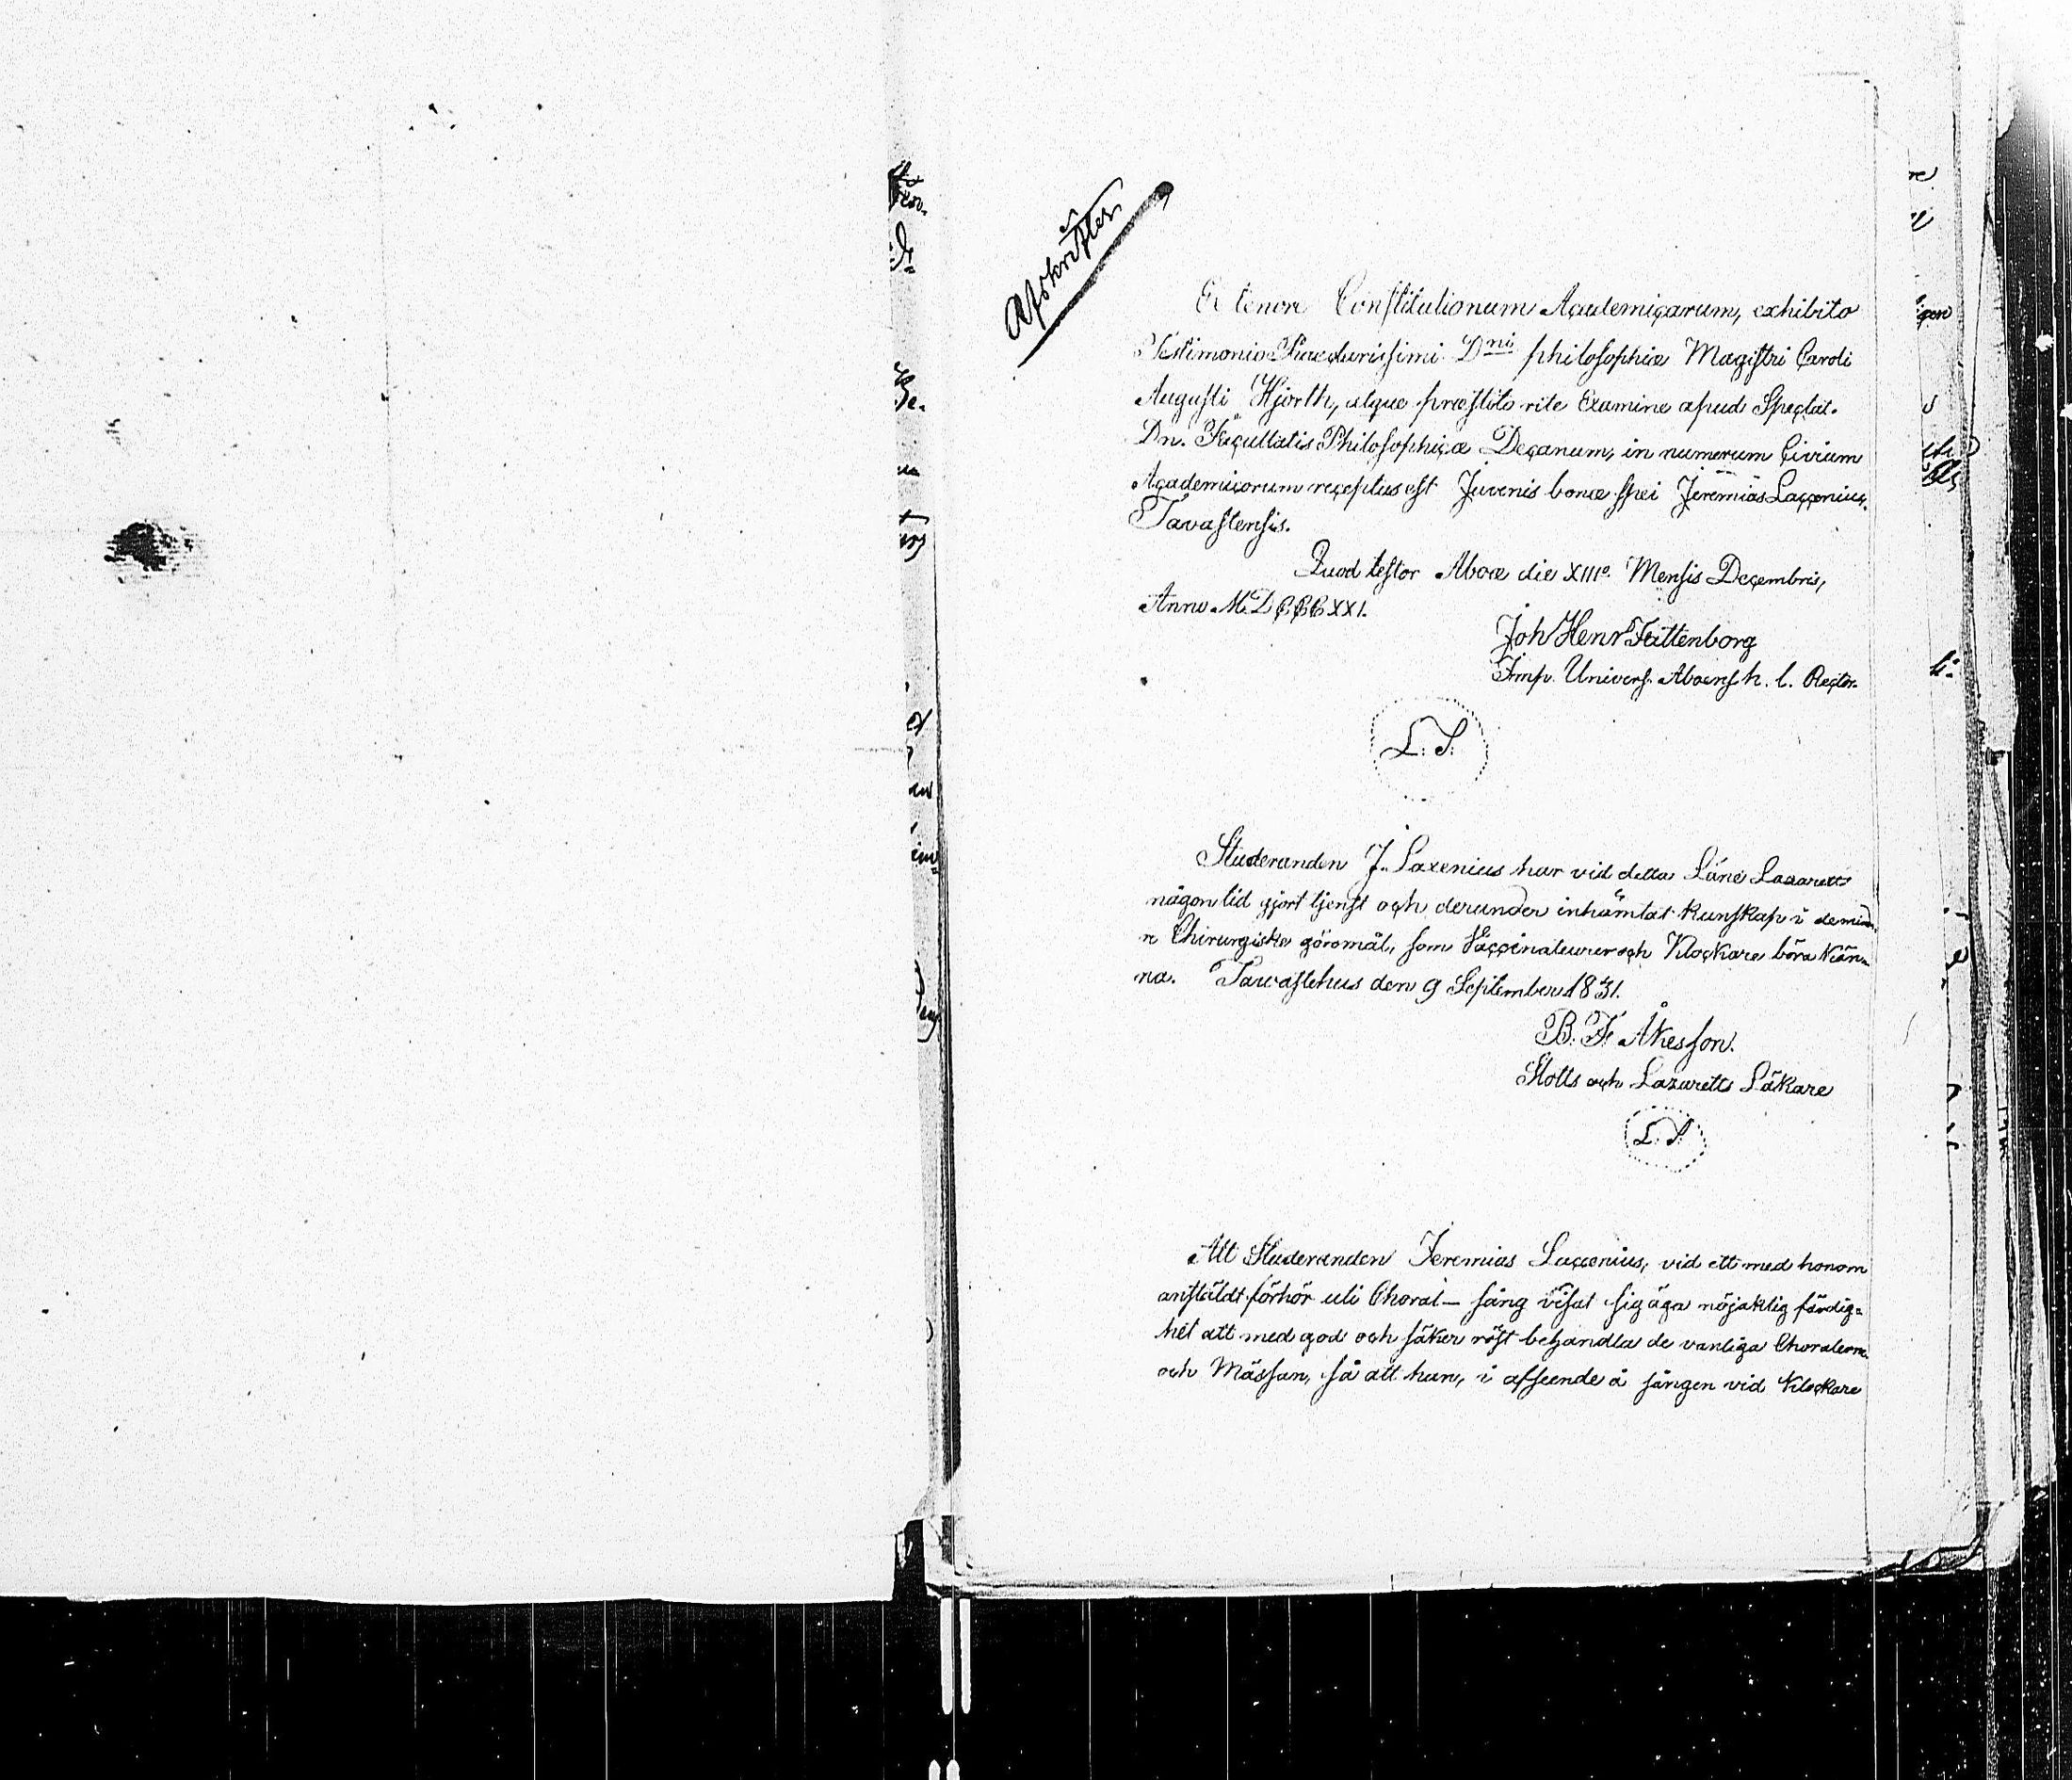 Afskrifter
Ex tenore Constitutionum Academicarum, exhibito
Testimonio Præclarissimi Dni philosophiæ Magistri Caroli
Augusti Hjorth, atque præstito rite Examine apud Spectat.
Dn. Facultatis Philosophicæ Decanum, in numerum Civium
Academicorum receptus est Juvenis bonæ spei Jeremias Laxenius,
Tavastensis.
Quod testor Aboæ die XIIIo. Mensis Decembris,
Anno MDCCCXXI.
Joh Henr Fattenborg
Imp. Univers. Aboens h. t. Rector.
L. S.
Studeranden J. Laxenius har vid detta Läns Lazarett
någon tid gjort tjenst och derunder inhämtat kunskap i de min-
re Chirurgiska göromål, som Vaccinateurer och Klockare böra kän-
na. Tawastehus den 9 September 1831.
B. F. Åkesson.
Slotts och Lazaretts Läkare
L. S.
Att Studeranden Jeremias Laxenius, vid ett med honom
anstäldt förhör uti Choral-sång visat sig äga nöjaktig färdig-
het att med god och säker röst behandla de vanliga Choralerne
och Mässan, så att han, i afseende å sången vid Klockare